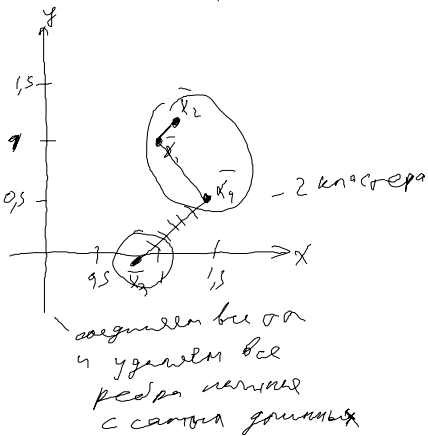 y
1,5
x̄₂
1
x̄₁
x̄₄
0,5
- 2 кластера
X
0,5
x̄₃
1,5
соединяем все
и удаляем все
ребра начиная
с самых длинных